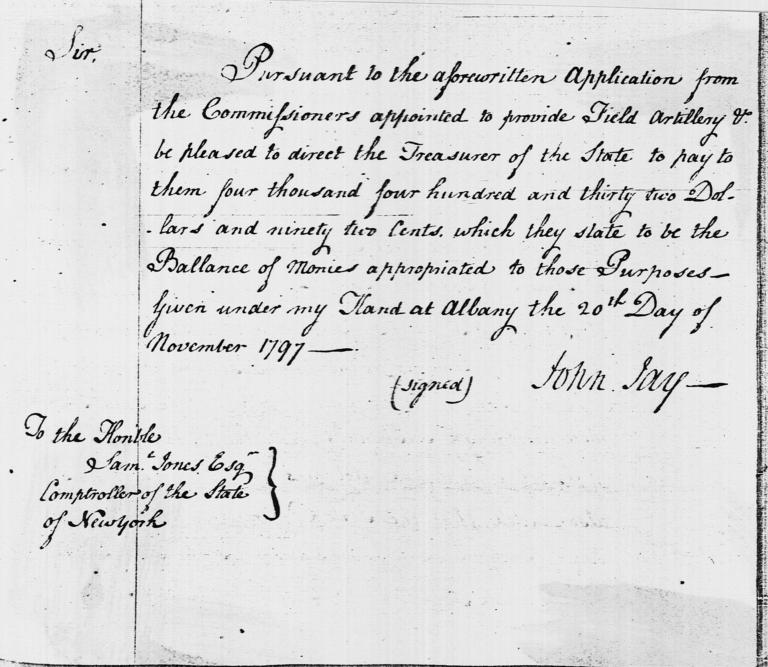 Sir,
Pursuant to the aforewritten Application from
the Commissioners appointed to provide Field Artillery &c.
be pleased to direct the Treasurer of the State to pay to
them four thousand four hundred and thirty two Dol-
-lars and ninety two Cents, which they state to be the
Ballance of Monies appropriated to those Purposes—
Given under my Hand at Albany the 20th Day of
November 1797—
(signed) John Jay—
To the Honble
Saml. Jones Esqr
Comptroller of the State
of New York